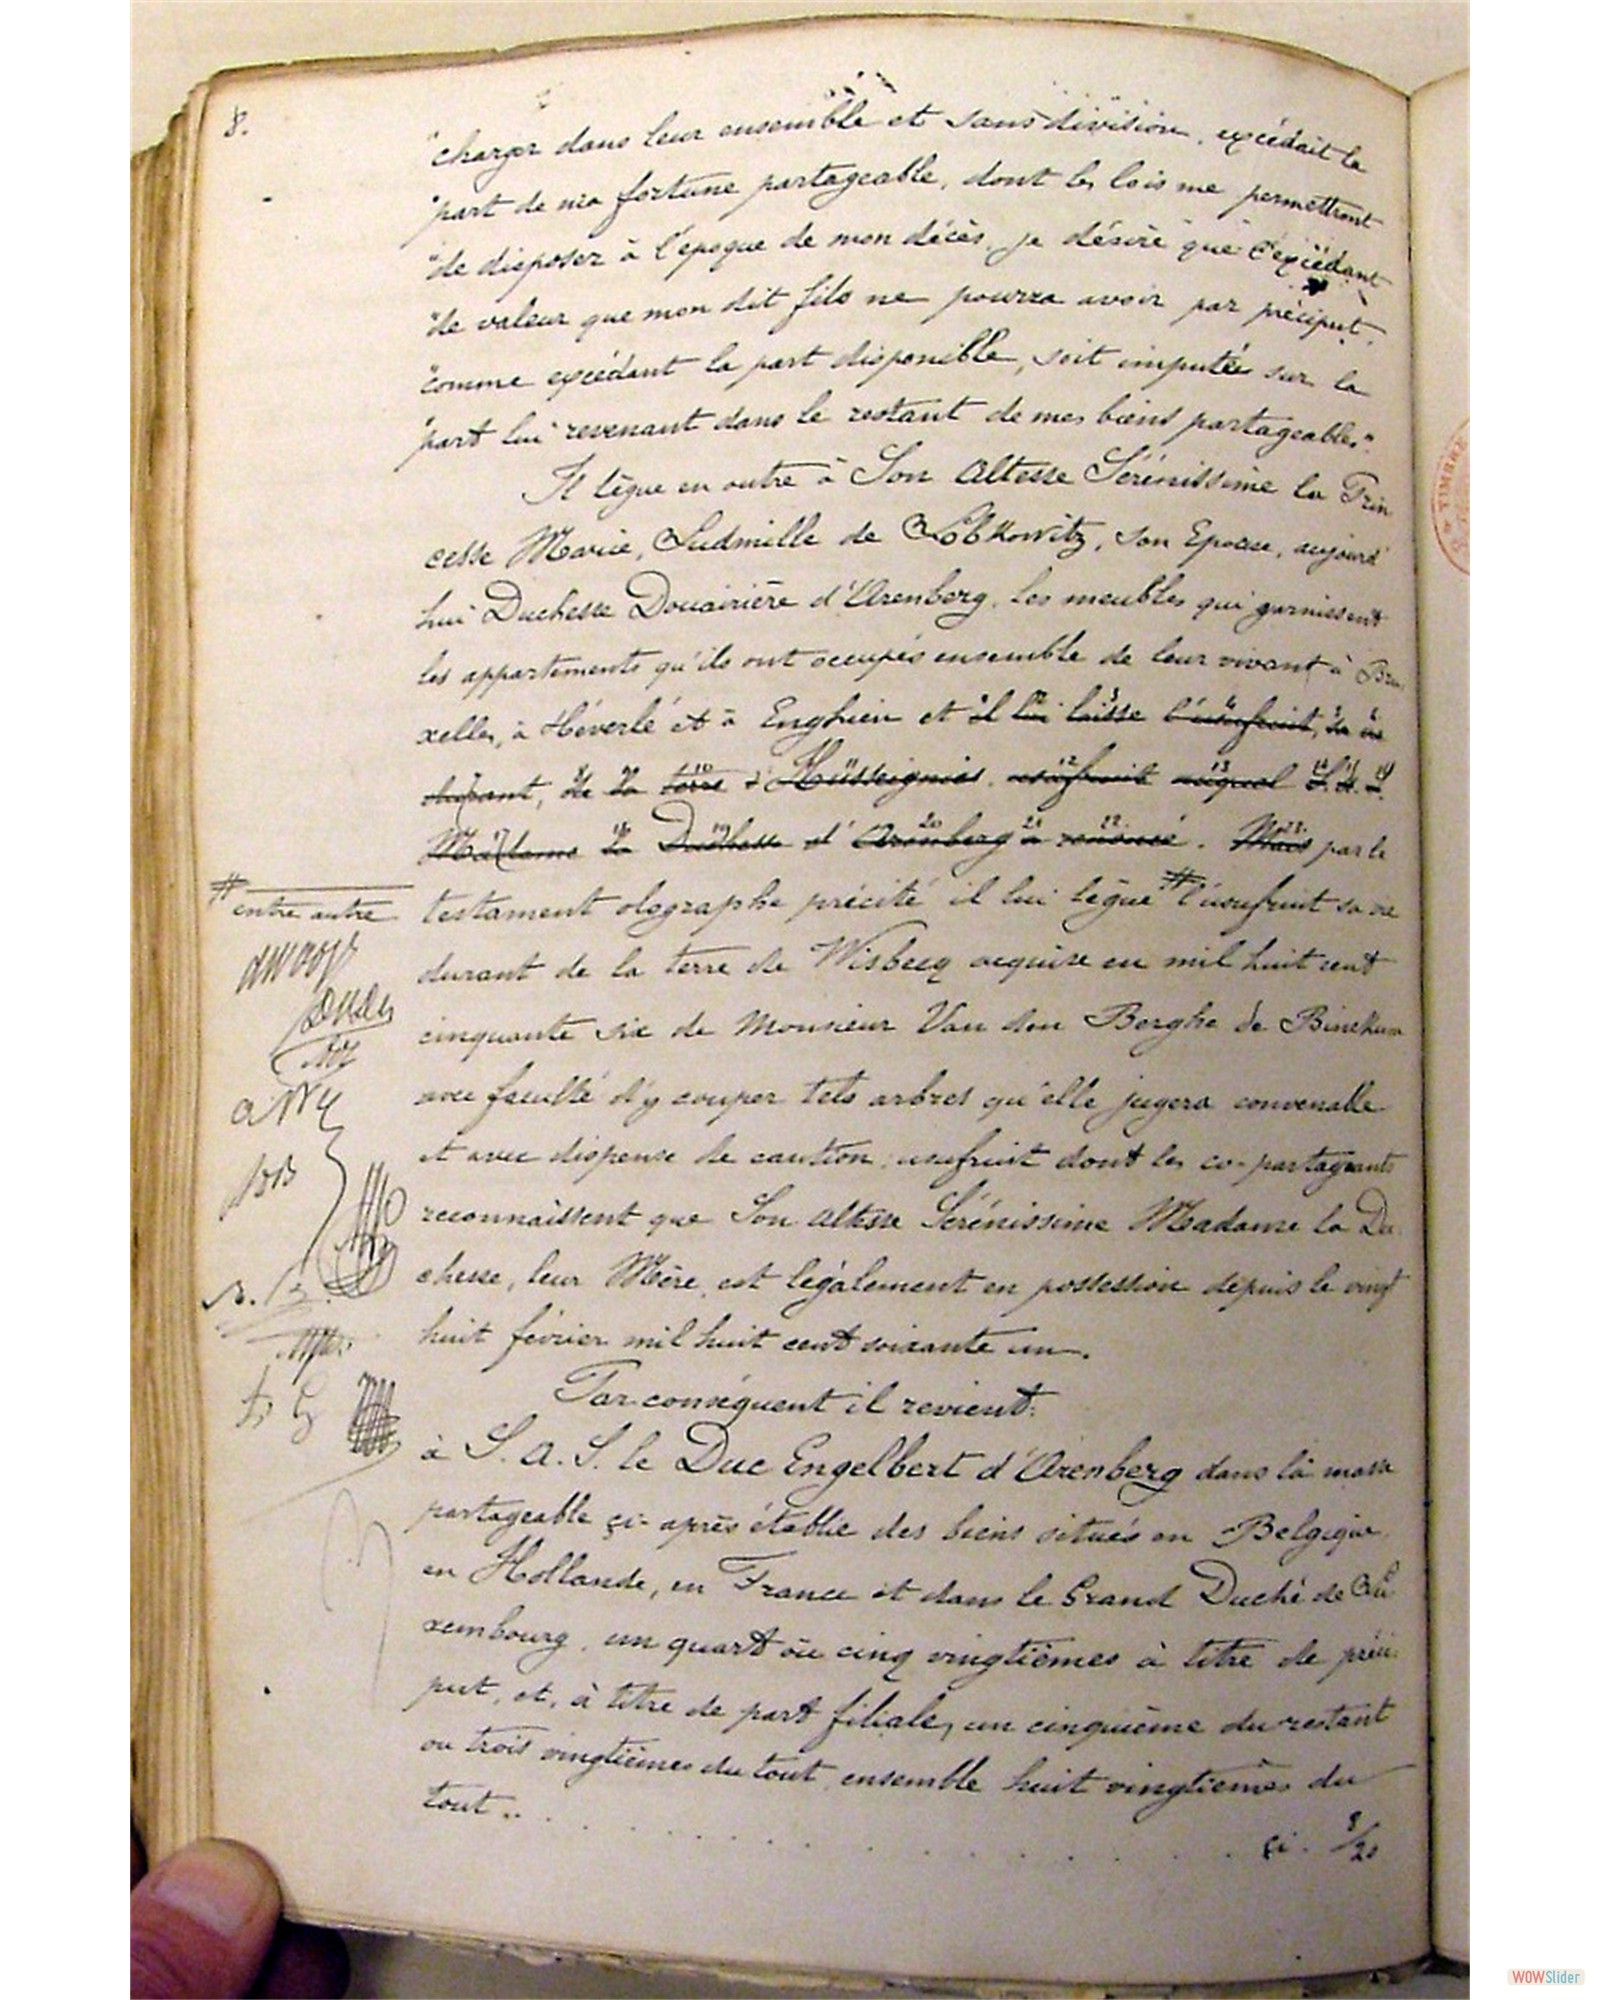 8.
"charger dans leur ensemble et sans division, excédait la
"part de ma fortune partageable, dont les lois me permettront
"de disposer à l'époque de mon décès, je désire que l'excédant
"de valeur que mon dit fils ne pourra avoir par préciput,
"comme excédant la part disponible, soit imputée sur la
"part lui revenant dans le restant de mes biens partageables."
Il lègue en outre à Son Altesse Sérénissime la Prin
cesse Marie, Ludmille de Lobkowitz, son Epouse, aujourd'
hui Duchesse Douairière d'Arenberg, les meubles qui garnissent
les appartements qu'ils ont occupés ensemble de leur vivant à Bru
xelles, à Héverlé et à Enghien et il lui laisse l'usufruit, sa vie
durant, de la terre d'Husseignies, usufruit auquel S. A. S.
Madame la Duchesse d'Arenberg a renoncé. Mais par le
testament olographe précité il lui lègue # l'usufruit sa vie
# entre autre
durant de la terre de Wisbecq acquise en mil huit cent
cinquante six de Monsieur Van den Berghe de Binckum
avec faculté d'y couper tels arbres qu'elle jugera convenable
et avec dispense de caution; usufruit dont les co-partageants
reconnaissent que Son Altesse Sérénissime Madame la Du
chesse, leur Mère, est légalement en possession depuis le vingt
huit février mil huit cent soixante un.
Par conséquent il revient:
à S. A. S. le Duc Engelbert d'Arenberg dans la masse
partageable çi-après établie des biens situés en Belgique,
en Hollande, en France et dans le Grand Duché de Lu
xembourg, un quart ou cinq vingtièmes à titre de préci
put, et, à titre de part filiale, un cinquième du restant
ou trois vingtièmes du tout, ensemble huit vingtièmes du
tout . . . . . . . . . . . . çi. 8/20
TIMBRE
WOWSlider